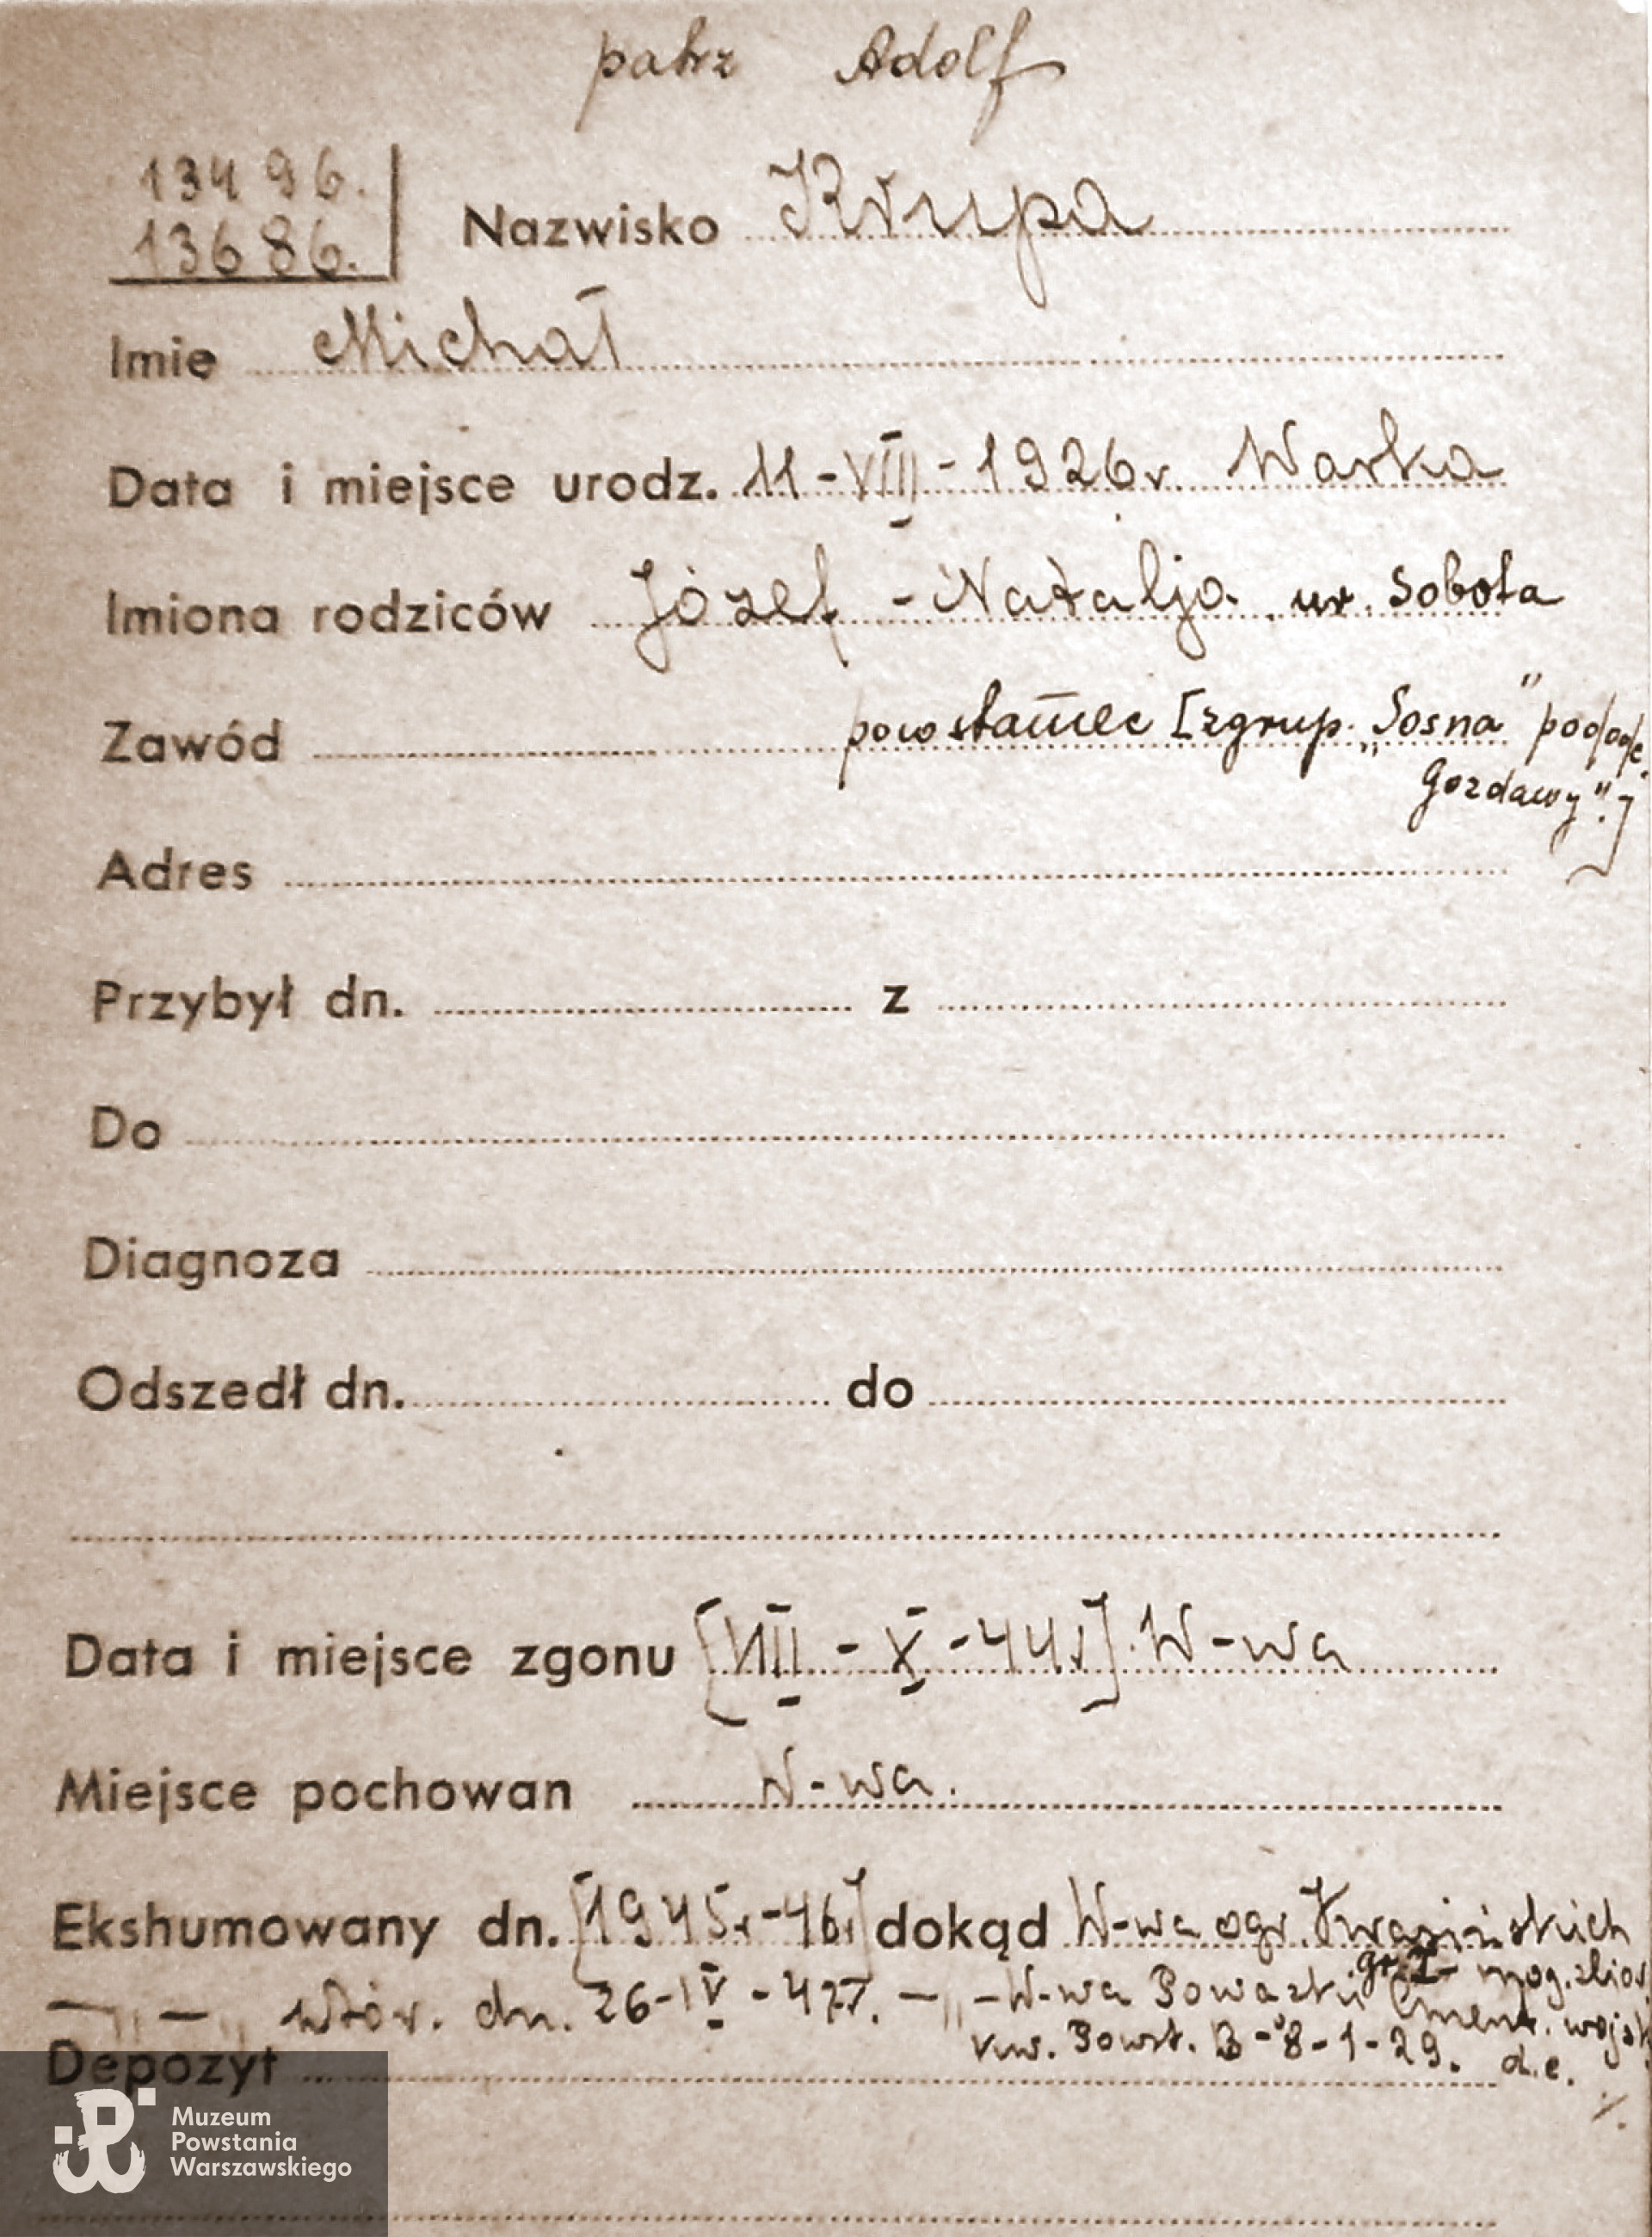 patrz Adolf
13496.
13686.
Nazwisko Krupa
Imię Michał
Data i miejsce urodz. 11-VIII-1926r. Warka
Imiona rodziców Józef - Natalja ur. Sobota
Zawód powstaniec [zgrup. „Sosna"
Gozdawy".]
Adres
Przybył dn. z
Do
Diagnoza
Odszedł dn. do
Data i miejsce zgonu [VIII - X - 44r]. W-wa
Miejsce pochowan W-wa.
Ekshumowany dn. [1945r-46r] dokąd W-wa ogr. Krasińskich
gr. I- mog. zbior
—„— wtór. dn. 26-IV-47r. —„— W-wa Powązki Cment. wojsk
kw. Powst. B-8-1-29. d.e.
Depozyt
Muzeum
Powstania
Warszawskiego